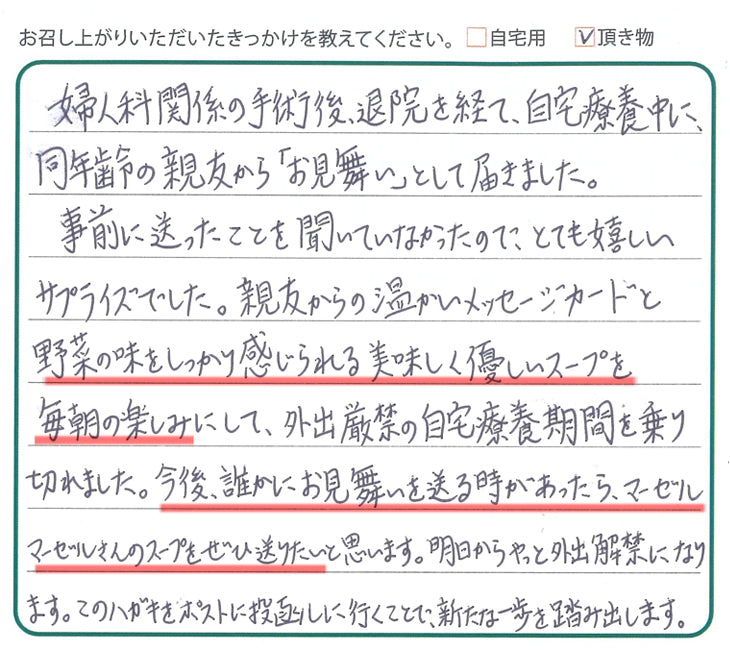 お召し上がりいただいたきっかけを教えてください。 □自宅用 ☑頂き物
婦人科関係の手術後、退院を経て、自宅療養中に、
同年齢の親友から「お見舞い」として届きました。
事前に送ったことを聞いていなかったので、とても嬉しい
サプライズでした。親友からの温かいメッセージカードと
野菜の味をしっかり感じられる美味しく優しいスープを
毎朝の楽しみにして、外出厳禁の自宅療養期間を乗り
切れました。今後、誰かにお見舞いを送る時があったら、マーゼル
マーゼルさんのスープをぜひ送りたいと思います。明日からやっと外出解禁になり
ます。このハガキをポストに投函しに行くことで、新たな一歩を踏み出します。